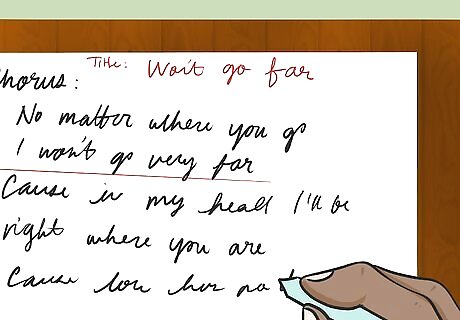 Title: Won't go far
horus:
No matter where you go
I won't go very far
Cause in my heart I'll be
right where you are
Cause love has no